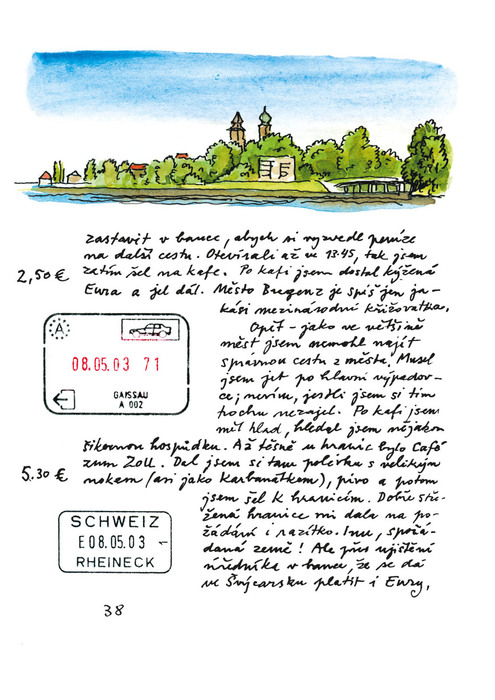 zastavit v bance, abych si vyzvedl peníze
na další cestu. Otevírali až ve 13.45, tak jsem
2,50 €
zatím šel na kafe. Po kafi jsem dostal kýžená
Eura a jel dál. Město Bregenz je spíš jen ja-
kási mezinárodní křižovatka.
Opět - jako ve většině
měst jsem nemohl najít
správnou cestu z města. Musel
jsem jet po hlavní výpadov-
ce; nevím, jestli jsem si tím
trochu nezajel. Po kafi jsem
měl hlad, hledal jsem nějakou
A
08.05.03 71
GAISSAU
A 002
šikovnou hospůdku. Až těsně u hranic bylo Café
5,30 €
zum Zoll. Dal jsem si tam polévku s velikým
nokem (asi jako karbanátkem), pivo a potom
jsem šel k hranicím. Dobře stře-
žená hranice mi dala na po-
žádání i razítko. Inu, spořá-
daná země! Ale přes ujištění
úředníka v bance, že se dá
ve Švýcarsku platit i Eury,
SCHWEIZ
E 08.05.03 1
RHEINECK
38